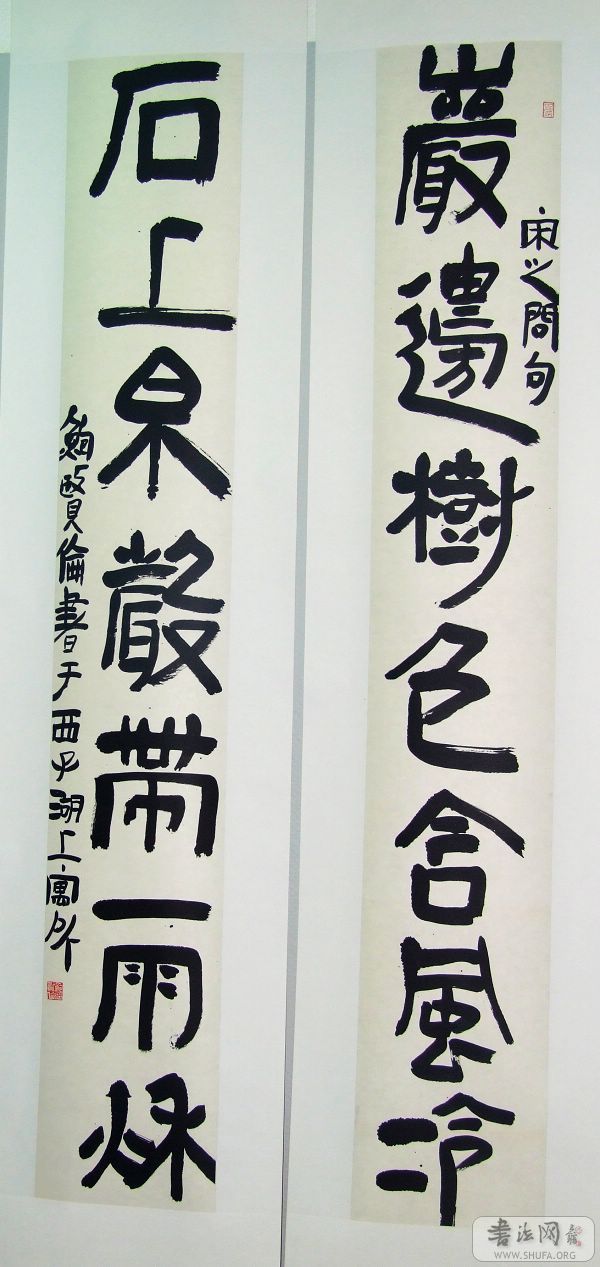 宋之問句
巖邊樹色含風冷
石上泉聲帶雨秌
鮑賢倫書于西子湖上寓所
書法网
WWW.SHUFA.ORG